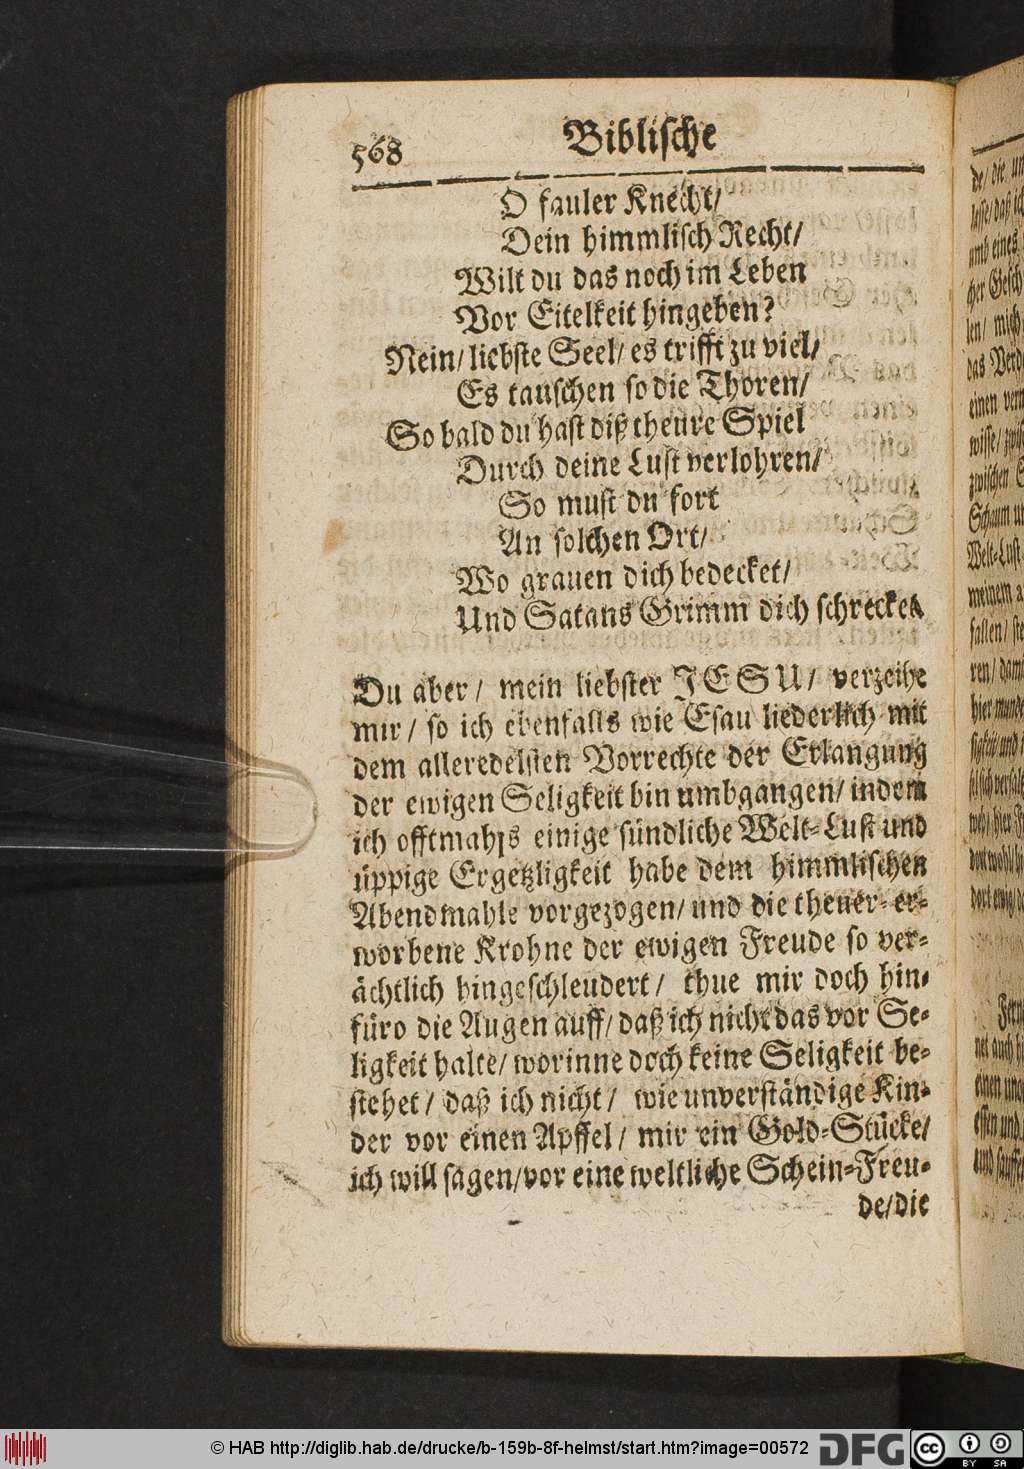 568
Biblische
O fauler Knecht/
Dein himmlisch Recht/
Wilt du das noch im Leben
Vor Eitelkeit hingeben?
Nein/ liebste Seel/ es trifft zu viel/
Es tauschen so die Thoren/
So bald du hast diß theure Spiel
Durch deine Lust verlohren/
So must du fort
An solchen Ort/
Wo grauen dich bedecket/
Und Satans Grimm dich schrecket.
Du aber/ mein liebster JESU/ verzeihe
mir/ so ich ebenfalls wie Esau liederlich mit
dem alleredelsten Vorrechte der Erlangung
der ewigen Seligkeit bin umbgangen/ indem
ich offtmahls einige sündliche Welt-Lust und
üppige Ergetzligkeit habe dem himmlischen
Abendmahle vorgezogen/ und die theuer-er-
worbene Krohne der ewigen Freude so ver-
ächtlich hingeschleudert/ thue mir doch hin-
füro die Augen auff/ daß ich nicht das vor Se-
ligkeit halte/ worinne doch keine Seligkeit be-
stehet/ daß ich nicht/ wie unverständige Kin-
der vor einen Apffel/ mir ein Gold-Stücke/
ich will sagen/ vor eine weltliche Schein-Freu-
de/ die
de/ die
© HAB http://diglib.hab.de/drucke/b-159b-8f-helmst/start.htm?image=00572
DFG
cc
BY SA